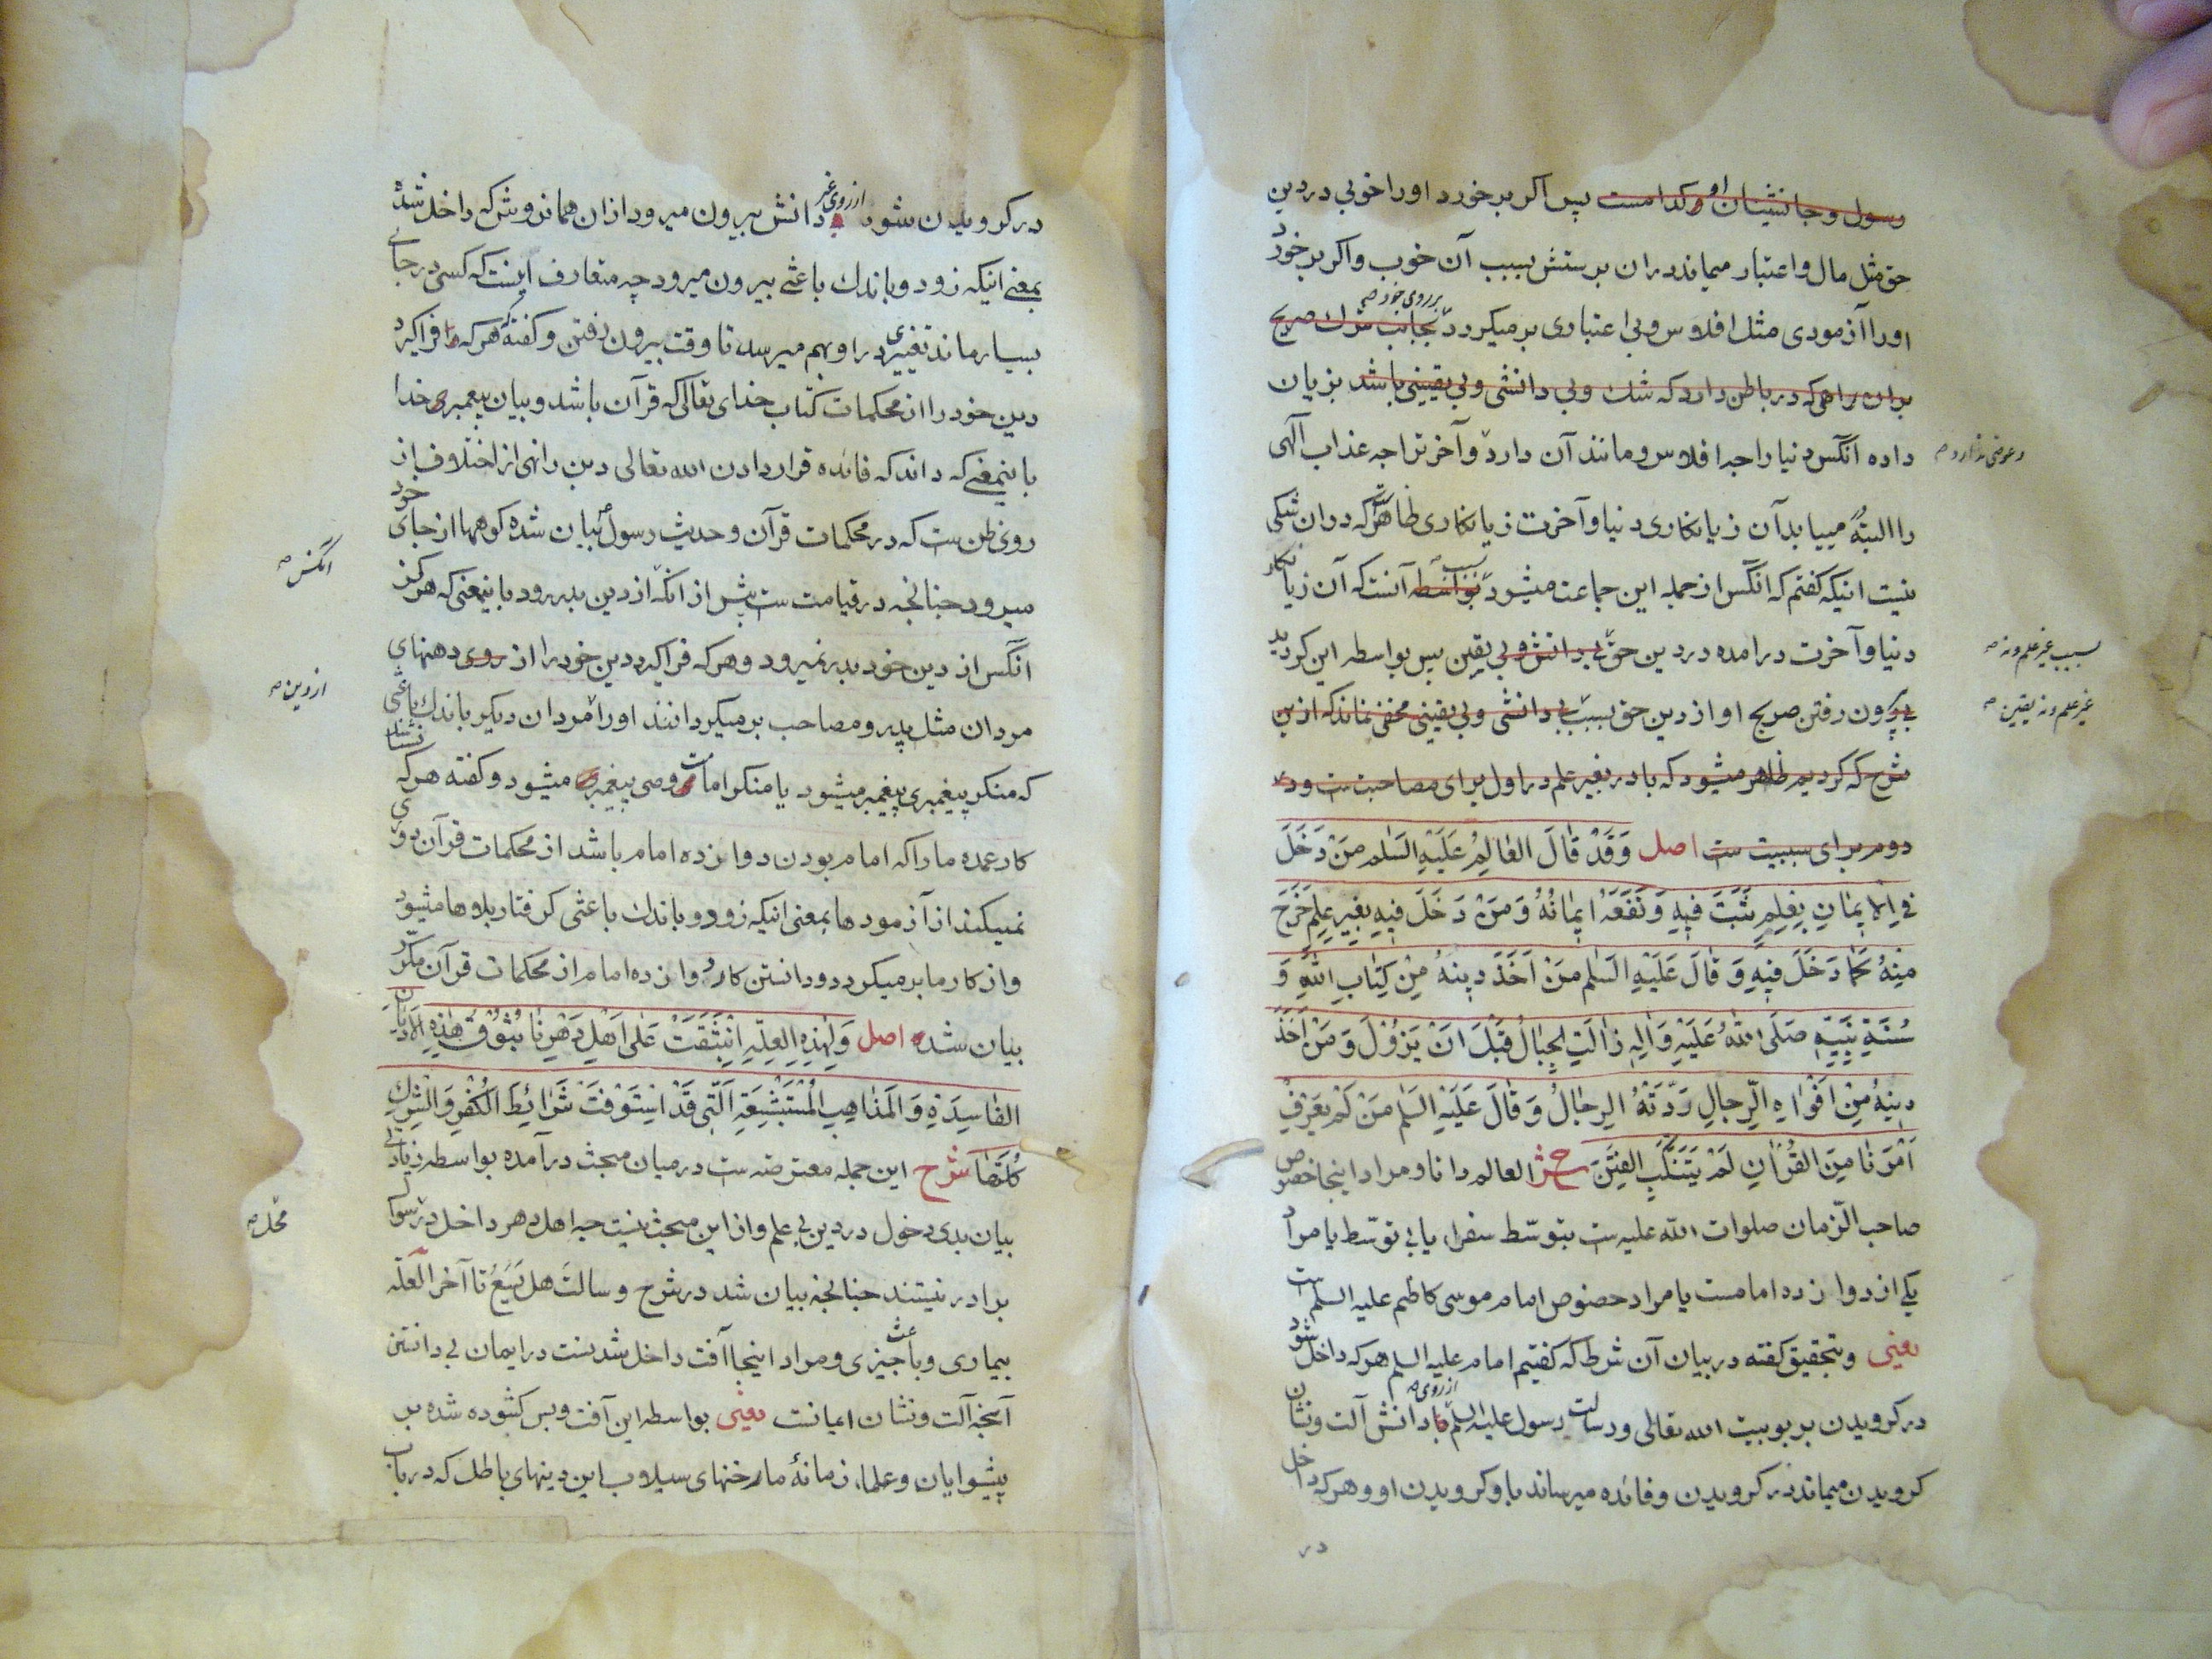 رسول و جانشینان او کدامست پس اگر برخورد او را خوبی در دین
حق مثل مال و اعتبار میماند در ان پرستش بسبب آن خوب و اکر برخورد
او را آزمودی مثل افلاس و بی اعتباری برمیکردد بجانب شرك صریح
بر روی خود
بران راهی که در باطن دارد که شك و بی دانشی و بی یقینی باشد بزیان
داده آنکس دنیا را چه افلاس و مانند آن دارد و آخرت را چه عذاب الهی
را البته مییابد آن زیانکاری دنیا و آخرت زیانکاری ظاهریست که در ان شکی
نیست انیکه کفتم که انکس از جمله این جماعت میشود بواسطه آنست که آن زیانکار
بسبب
دنیا و آخرت در امده در دین حق بی دانش و بی یقین پس بواسطه این کردید
بیرون رفتن صریح او از دین حق بسبب بی دانشی و بی یقینی مخفی نماند که ازین
شرح که کردیم ظاهر میشود که با در بغیر علم در اول برای مصاحبت ست و در
دوم برای سببیت ست اصل وَقَدْ قالَ العٰالِمُ عَلَیْهِ السَّلٰم مَنْ دَخَلَ
فِي الاِیمٰانِ بِعِلْمٍ ثَبَتَ فیهِ وَ نَفَعَهُ ایمٰانُهُ وَ مَنْ دَخَلَ فیهِ بِغَیرِ عِلمٍ خَرَجَ
مِنهُ کَمٰا دَخَلَ فیهِ وَ قٰالَ عَلَیْهِ السَّلٰم مَنْ اَخَذَ دینَهُ مِنْ کِتٰابِ اللّٰهِ وَ
سُنَّةِ نَبِیِّهِ صَلَّی اللّٰهُ عَلَیْهِ وَ الِهِ زٰالَتِ الجِبٰالُ قَبْلَ اَنْ یَزُوْلَ وَ مَنْ اَخَذَ
دینَهُ مِنْ اَفْوٰاهِ الرِّجٰالِ رَدَّتْهُ الرِجٰالُ وَ قٰالَ عَلَیْهِ السَّلٰم مَنْ لَمْ یَعْرِفْ
اَمْرَنٰا مِنَ القُرْاٰنِ لَمْ یَتَنَکَّبِ الفِتَنَ شرح العالم دانا و مراد اینجا خصوص
صاحب الزمان صلوات الله علیه ست بتوسّط سفراء یا بی توسّط یا مراد
یکی از دوازده امامست یا مراد خصوص امام موسی کاظم علیه السلم ست
یعنی و بتحقیق کفته در بیان آن شرط که کفتیم امام علیه السلم هر که داخل شود
در کرویدن بربوبیت الله تعالی و رسالت رسول علیه السلم با دانش آلت و نشان
از روی
کرویدن میماند در کرویدن و فائده میرساند باو کرویدن او و هر که داخل
در
و عوضی ندارد
بسبب غیر علم و نه
غیر علم و نه یقین
در کرویدن شود از روی غیر دانش بیرون میرود ازان همانروش که داخل شده
بمعنی انیکه زود و باندك باعثی بیرون میرود چه متعارف اینست که کسی در جائی
بسیار ماند تغییری در او بهم میرسد تا وقت بیرون رفتن و کفته هر که فرا کیرد
دین خود را از محکمات کتاب خدای تعالی که قرآن باشد و بیان پیغمبر خدا
باینمعنی که داند که فائده قرار دادن الله تعالی دین را نهی از اختلاف از
روی ظن ست که در محکمات قرآن و حدیث رسول بیان شده کوهها از جای خود
میرود چنانچه در قیامت ست پیش از انکه از دین بدر رود باینمعنی که هرکز
انکس از دین خود بدر نمیرود و هر که فرا کیرد دین خود را از روی دهنهای
مردان مثل پدر و مصاحب برمیکردانند او را مردان دیکر باندك باعثی
که منکر پیغمبری پیغمبر میشود یا منکر امامت وصی پیغمبر میشود و کفته هر که نشناسد
کار عمده ما را که امام بودن دوازده امام باشد از محکمات قرآن دوری
نمیکند از آزمودها بمعنی انیکه زود و باندك باعثی کرفتار بلاها میشود
و از کار ما برمیکردد و دانستن کار دوازده امام از محکمات قرآن مکرّر
بیان شده اصل وَلِهٰذِهِ العِلَّةِ اِنْبَثَقَتْ عَلٰی اَهْلِ دَهْرِنٰا بُثُوْقُ هٰذِهِ الاَدْیٰانِ
الفٰاسِدَةِ وَ المَذٰاهِبِ المُسْتَبْشِعَةِ اَلَّتی قَدْ اسْتَوْفَتْ شَرٰائِطَ الکُفْرِ وَ الشِّرْكِ
کُلَّهٰا شرح این جمله معترضه ست در میان مبحث درآمده بواسطه زیادتی
بیان بدی دخول در دین بی علم و از این مبحث نیست چه اهل دهر داخل در سؤال
برادر نیستند چنانچه بیان شد در شرح و سالت هل یَسَعُ تا آخر العلّة
بیماری و باعث چیزی و مراد اینجا آفت داخل شدنست در ایمان بی دانستن
آنچه آلت و نشان ایمانست یعنی بواسطه این آفت و بس کشوده شده بر
پیشوایان و علماء زمانهٔ ما رخنهای سیلاب این دینهای باطل که در باب
انکس
از دین
محل